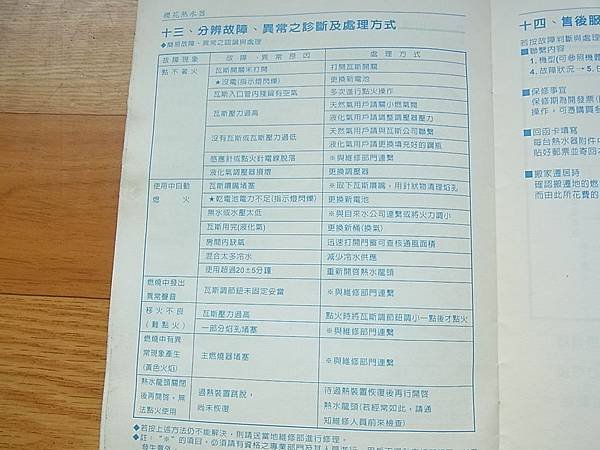 櫻花熱水器
十三、分辨故障、異常之診斷及處理方式
◆簡易故障、異常之認識與處理
故障現象 故障、異常原因 處理方式
點不著火 瓦斯開關未打開 打開瓦斯開關
★沒電(指示燈閃爍) 更換新電池
瓦斯入口管內殘留有空氣 多次進行點火操作
瓦斯壓力過高 天然氣用戶請關小燃氣閥
液化氣用戶請調整調壓器壓力
沒有瓦斯或瓦斯壓力過低 天然氣用戶請與瓦斯公司聯繫
液化氣用戶請更換填充好的鋼瓶
感應針或點火針電線脫落 ※與維修部門連繫
液化氣調壓器損壞 更換調壓器
使用中自動 瓦斯噴嘴堵塞 ※取下瓦斯噴嘴,用針狀物清理焰孔
熄火 ★乾電池電力不足(指示燈閃爍) 更換新電池
無水或水壓太低 ※與自來水公司連繫或將火力調小
瓦斯用完(液化氣) 更換新桶(換氣)
房間內缺氧 迅速打開門窗可查核通風面積
混合太多冷水 減少冷水供應
使用超過20±5分鐘 重新開啓熱水龍頭
燃燒中發出
異常聲音 瓦斯調節鈕未固定妥當 ※與維修部門連繫
移火不良 瓦斯壓力過高 點火時將瓦斯調節鈕調小一點後才點火
(難點火) 一部分焰孔堵塞 ※與維修部門連繫
燃燒中有異
常現象產生 主燃燒器堵塞 ※與維修部門連繫
(黃色火焰)
熱水龍頭關閉 過熱裝置跳脫, 待過熱裝置恢復後再行開啓
後再開啓,無 尚未恢復 熱水龍頭(若經常如此,請通
法點火使用 知維修人員前來檢查)
◆若按上述方法仍不能解決,則請送當地維修部進行修理。
◆註:"※"的項目,必須請有資格之專業部門及其人員進行
十四、售後服
若按故障判斷與處理
■聯繫內容
1.機型(可參照機體
4.故障狀況→5.日
■保修事宜
保修期為開發票(
操作,可憑購買多
■回函卡填寫
每台熱水器附件中
貼好郵票並寄回本
■搬家遷居時
確認搬遷地的燃
而由此所花費的